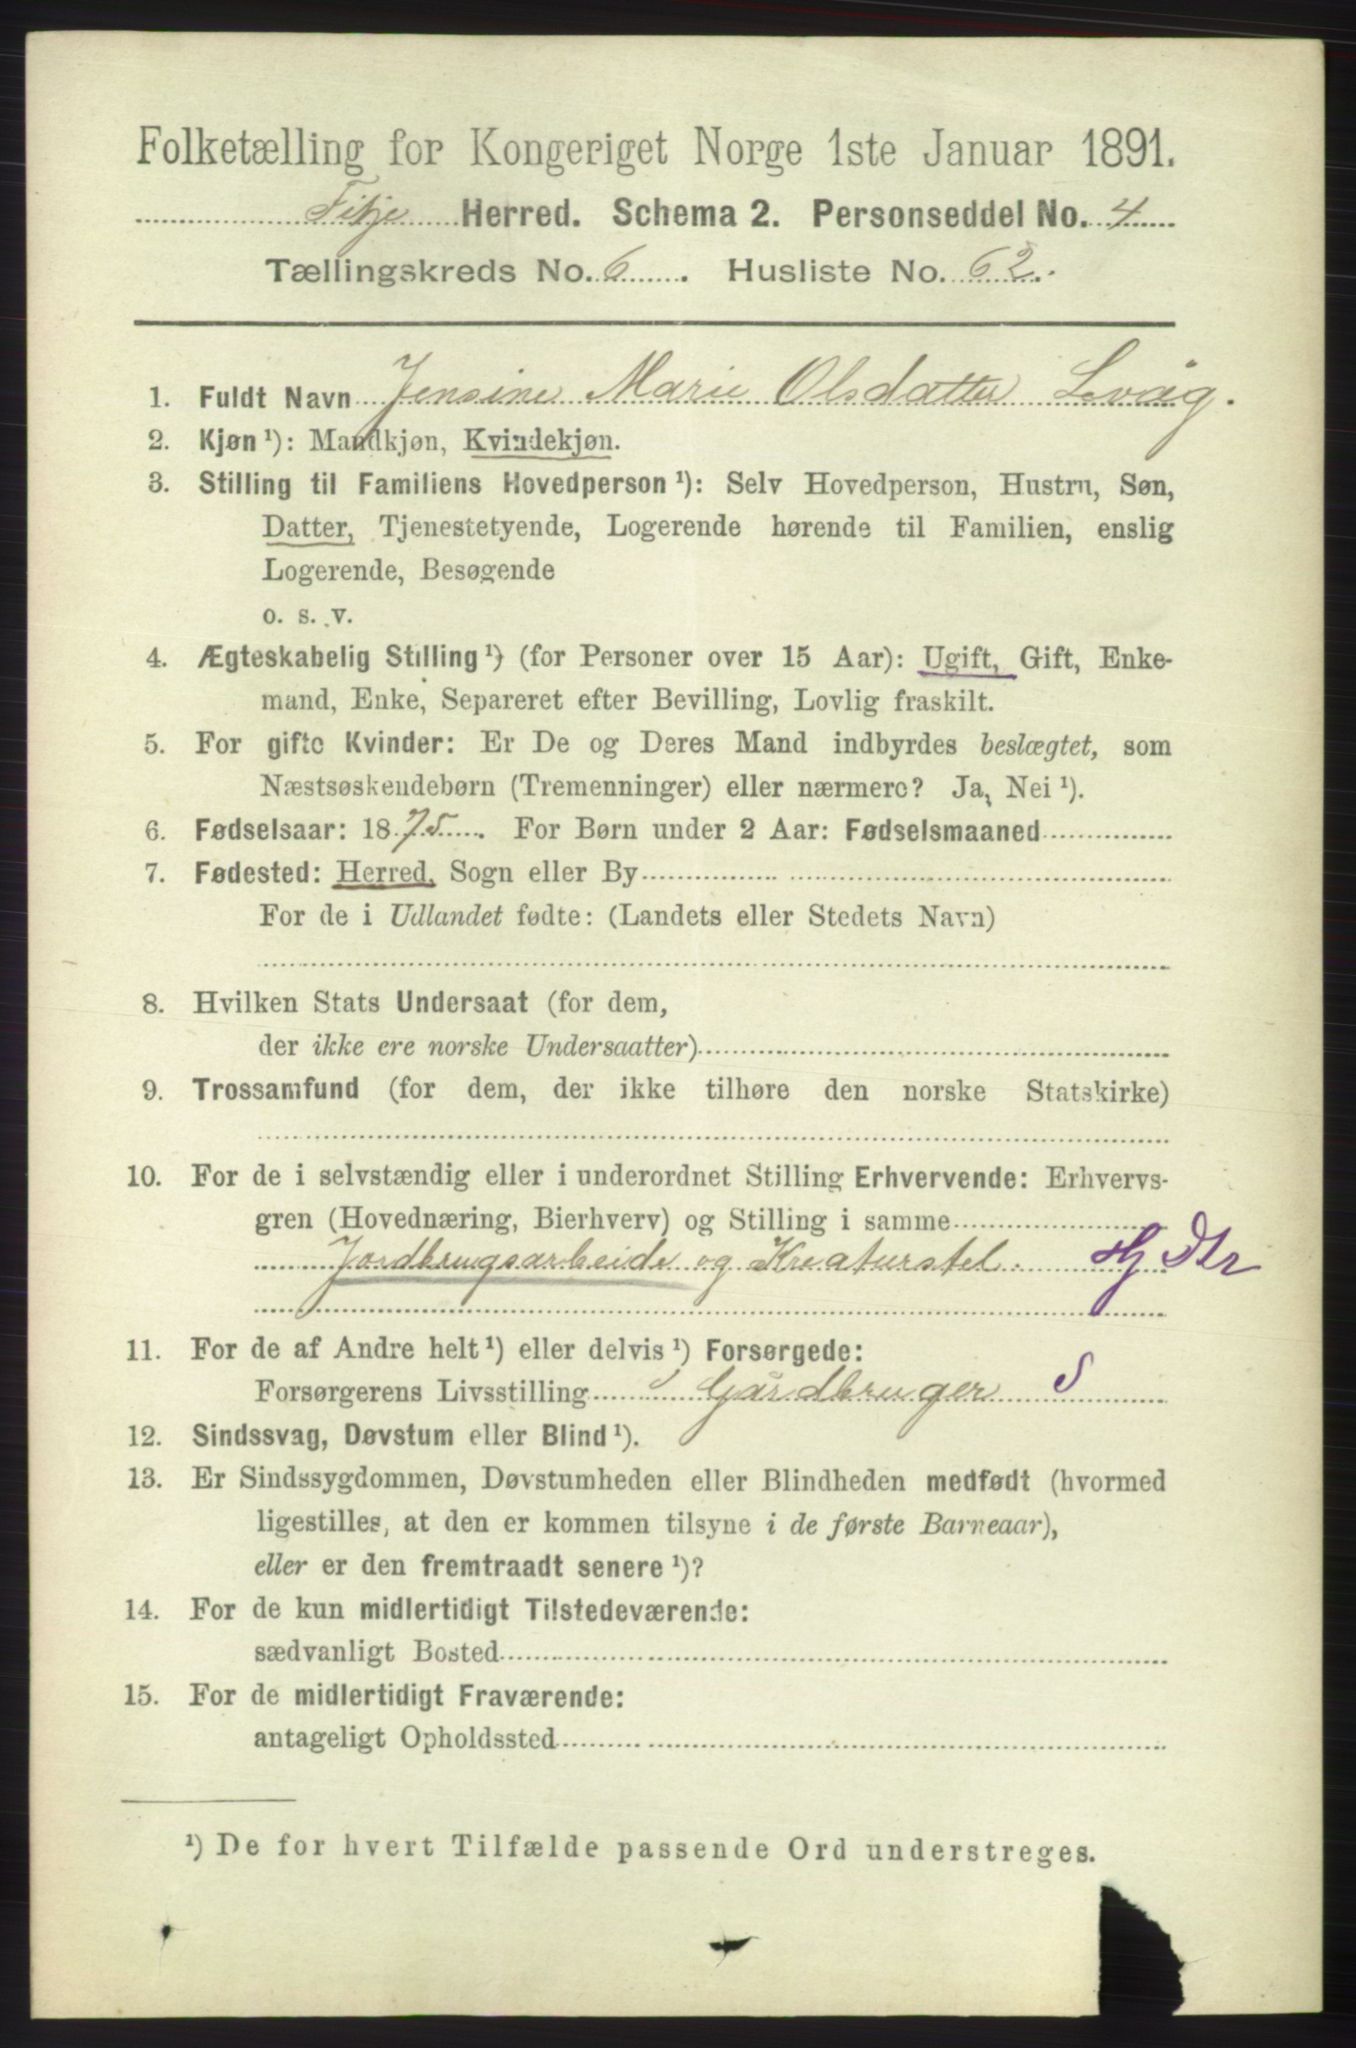 Folketælling for Kongeriget Norge 1ste Januar 1891.
Fitje Herred. Schema 2. Personseddel No. 4
Tællingskreds No. 6. Husliste No. 62.
1. Fuldt Navn Jensine Marie Olsdatter Lvåg.
2. Kjøn ¹): Mandkjøn, Kvindekjøn.
3. Stilling til Familiens Hovedperson ¹): Selv Hovedperson, Hustru, Søn,
Datter, Tjenestetyende, Logerende hørende til Familien, enslig
Logerende, Besøgende
o. s. v.
4. Ægteskabelig Stilling ¹) (for Personer over 15 Aar): Ugift, Gift, Enke-
mand, Enke, Separeret efter Bevilling, Lovlig fraskilt.
5. For gifte Kvinder: Er De og Deres Mand indbyrdes beslægtet, som
Næstsøskendebørn (Tremenninger) eller nærmere? Ja, Nei ¹).
6. Fødselsaar: 1875. For Børn under 2 Aar: Fødselsmaaned
7. Fødested: Herred, Sogn eller By
For de i Udlandet fødte: (Landets eller Stedets Navn)
8. Hvilken Stats Undersaat (for dem,
der ikke ere norske Undersaatter)
9. Trossamfund (for dem, der ikke tilhøre den norske Statskirke)
10. For de i selvstændig eller i underordnet Stilling Erhvervende: Erhvervs-
gren (Hovednæring, Bierhverv) og Stilling i samme
Jordbrugsarbeide og Kreaturstel. Hj Dtr
11. For de af Andre helt ¹) eller delvis ¹) Forsørgede:
Forsørgerens Livsstilling Gårdbruger S
12. Sindssvag, Døvstum eller Blind ¹).
13. Er Sindssygdommen, Døvstumheden eller Blindheden medfødt (hvormed
ligestilles, at den er kommen tilsyne i de første Barneaar),
eller er den fremtraadt senere ¹)?
14. For de kun midlertidigt Tilstedeværende:
sædvanligt Bosted
15. For de midlertidigt Fraværende:
antageligt Opholdssted
¹) De for hvert Tilfælde passende Ord understreges.